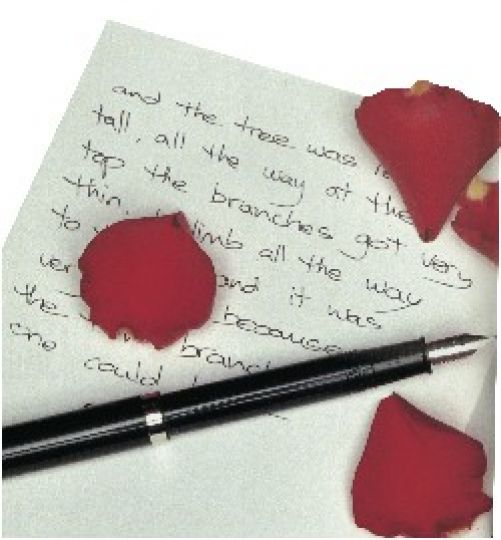 and the tree was
tall, all the way at the
top the branches got very
thin, climb all the way
to and it was
because
the branch
one could